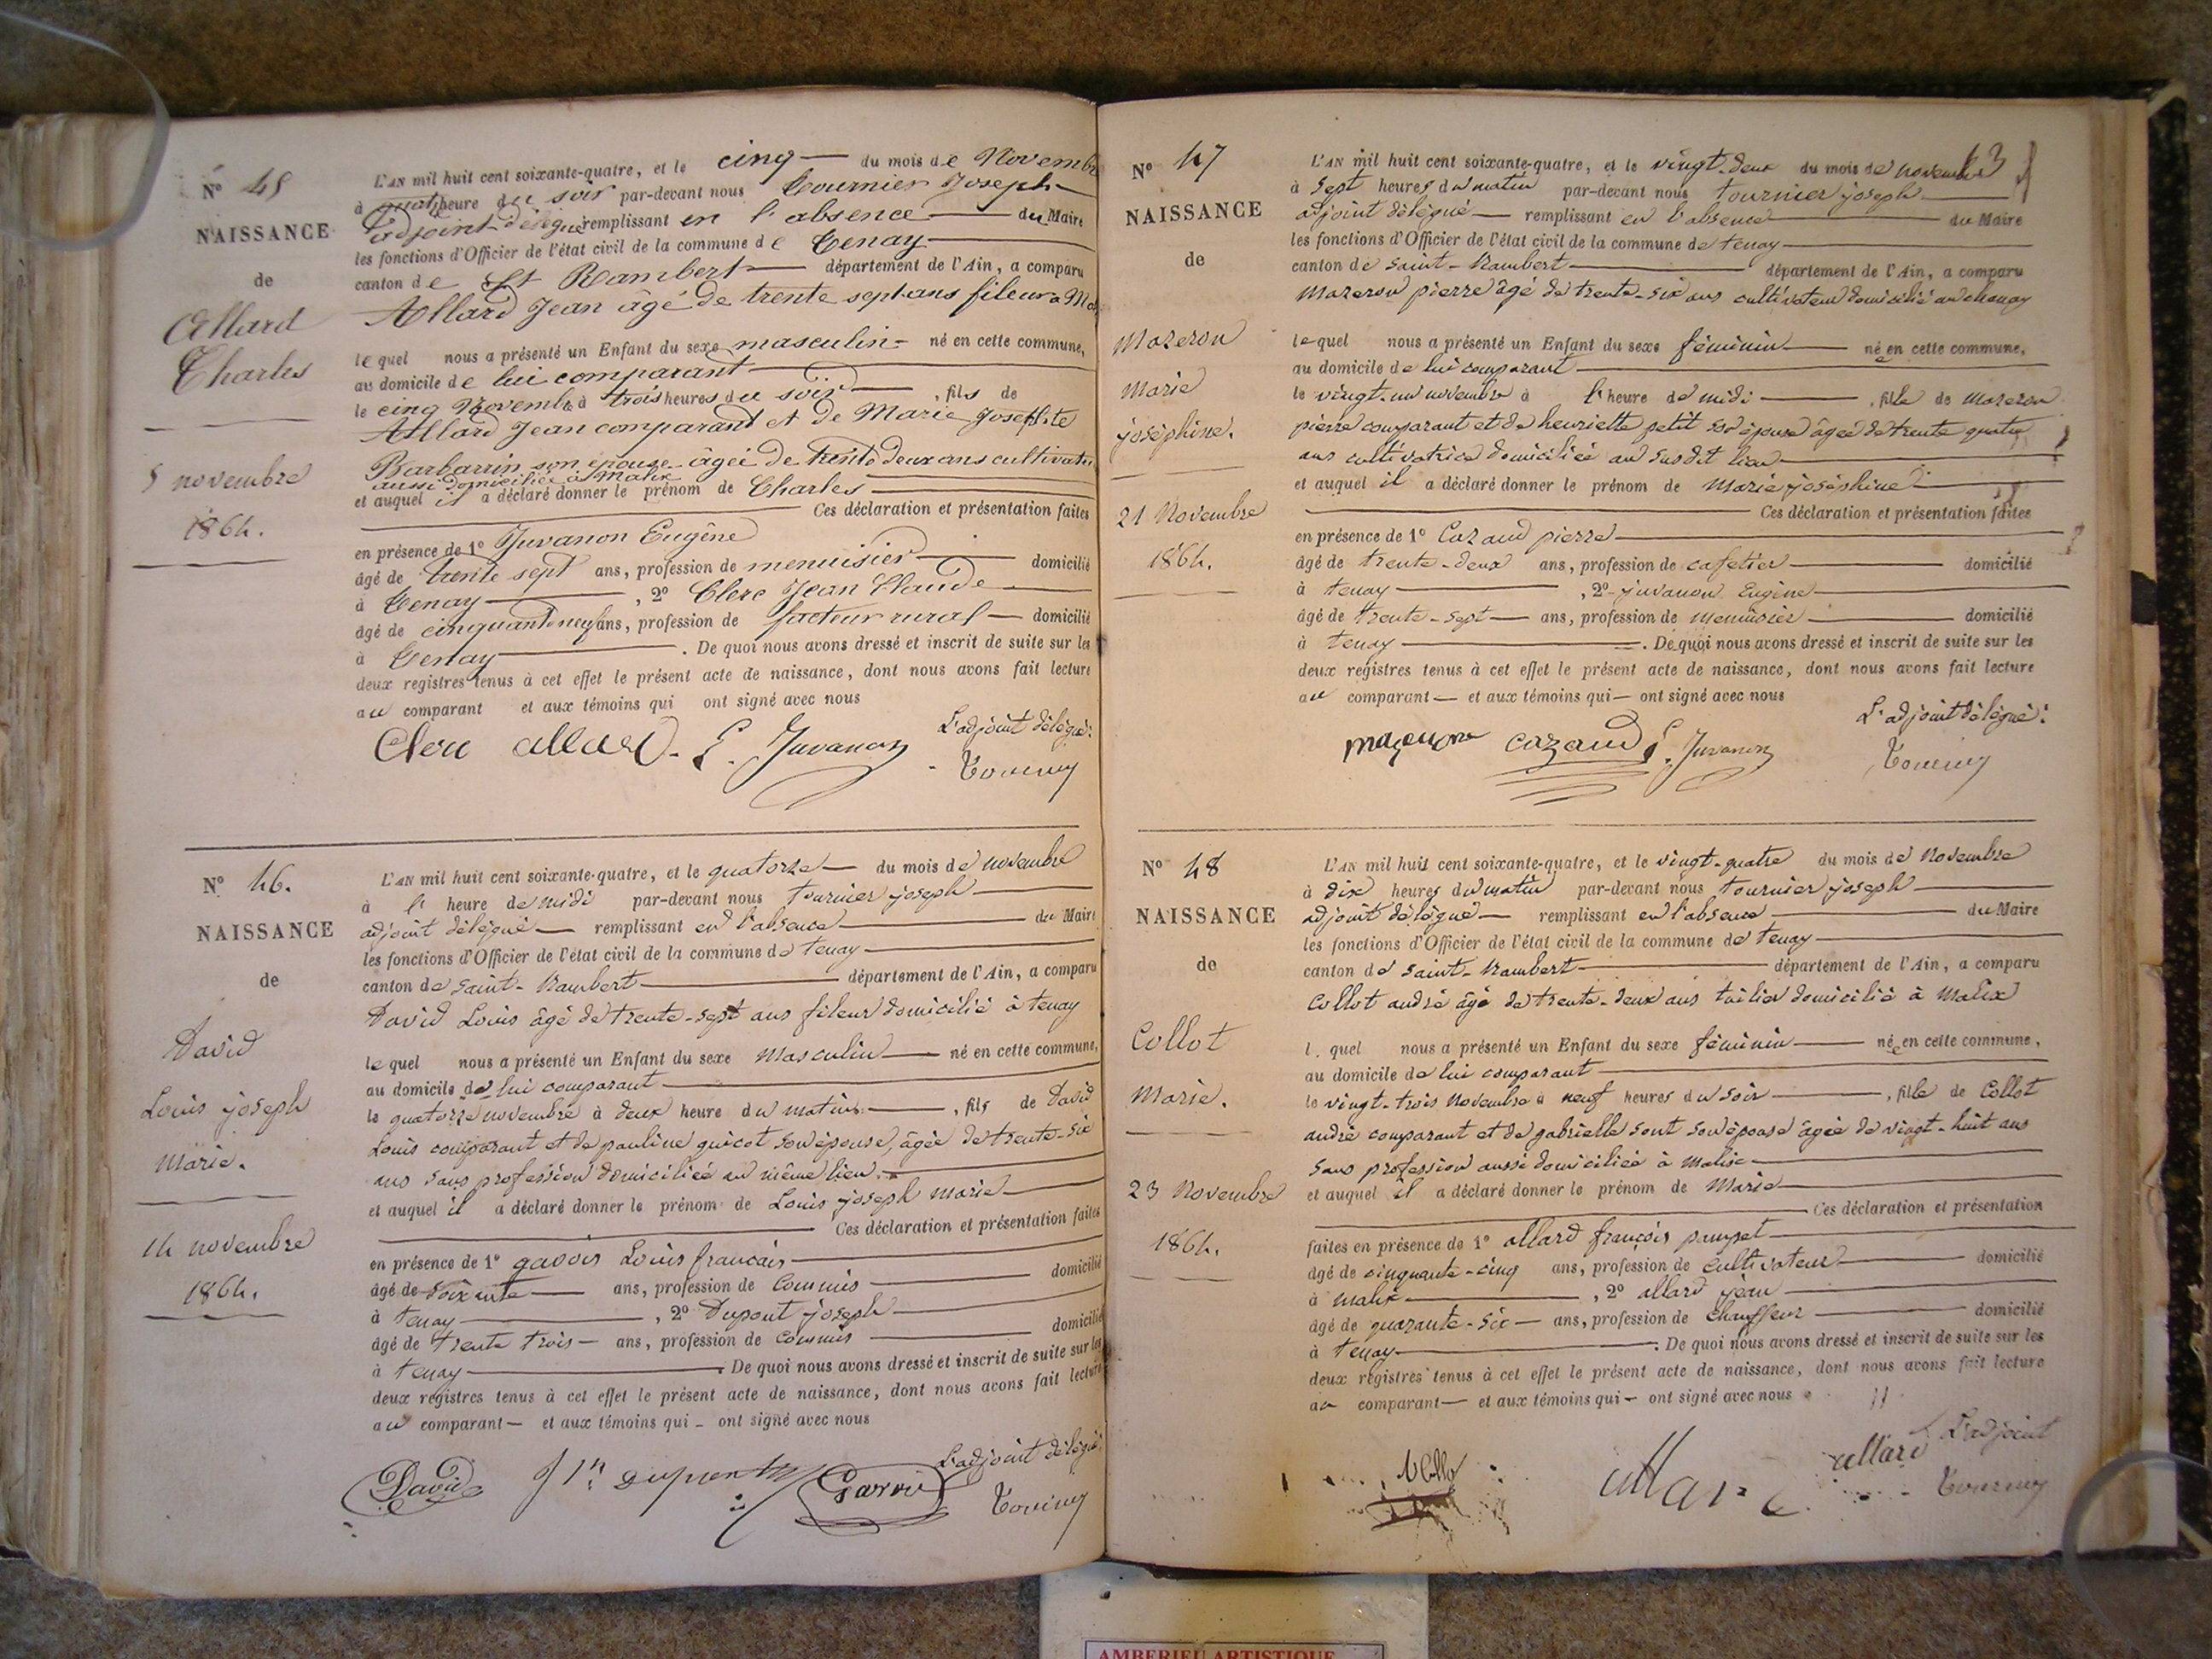 Nº 45
NAISSANCE
de
Allard
Charles
5 novembre
1864.
L'AN mil huit cent soixante-quatre, et le cinq du mois de Novembre
à quatre heure du soir par-devant nous Tournier Joseph
adjoint délégué remplissant en l'absence du Maire
les fonctions d'Officier de l'état civil de la commune de Tenay
canton de St Rambert département de l'Ain, a comparu
Allard Jean âgé de trente sept ans fileur a
lequel nous a présenté un Enfant du sexe masculin né en cette commune,
au domicile de lui comparant
le cinq Novembre à trois heures du soir, fils de
Allard Jean comparant et de Marie Josephte
Barbarrin son épouse âgée de trente deux ans
aussi domiciliée à Malix
et auquel il a déclaré donner le prénom de Charles
Ces déclaration et présentation faites
en présence de 1º Juvanon Eugêne
âgé de trente sept ans, profession de menuisier domicilié
à Tenay, 2º Clerc Jean Claude
âgé de cinquante neuf ans, profession de facteur rural domicilié
à Tenay. De quoi nous avons dressé et inscrit de suite sur les
deux registres tenus à cet effet le présent acte de naissance, dont nous avons fait lecture
au comparant et aux témoins qui ont signé avec nous
L'adjoint délégué:
Clerc allard E. Juvanon
Nº 46.
NAISSANCE
de
David
Louis joseph
Marie.
14 novembre
1864.
L'AN mil huit cent soixante-quatre, et le quatorze du mois de novembre
à l' heure de midi par-devant nous tournier joseph
adjoint délégué remplissant en l'absence du Maire
les fonctions d'Officier de l'état civil de la commune de tenay
canton de saint-Rambert département de l'Ain, a comparu
David Louis âgé de trente-sept ans fileur domicilié à tenay
lequel nous a présenté un Enfant du sexe Masculin né en cette commune,
au domicile de lui comparant
le quatorze novembre à deux heure du matin, fils de David
Louis comparant et de pauline guicot son épouse, âgée de trente-six
ans sans profession domiciliée au même lieu.
et auquel il a déclaré donner le prénom de Louis joseph marie
Ces déclaration et présentation faites
en présence de 1º gavois Louis francais
âgé de soixante ans, profession de Commis domicilié
à tenay, 2º Dupont joseph
âgé de trente trois ans, profession de commis domicilié
à tenay. De quoi nous avons dressé et inscrit de suite sur les
deux registres tenus à cet effet le présent acte de naissance, dont nous avons fait lecture
au comparant et aux témoins qui ont signé avec nous
L'adjoint délégué
David Jh Dupont
Nº 47
NAISSANCE
de
Mazeron
Marie
joséphine.
21 Novembre
1864.
L'AN mil huit cent soixante-quatre, et le vingt-deux du mois de novembre
à sept heures du matin par-devant nous tournier joseph
adjoint délégué remplissant en l'absence du Maire
les fonctions d'Officier de l'état civil de la commune de tenay
canton de saint-Rambert département de l'Ain, a comparu
Mazeron pierre âgé de trente-six ans cultivateur domicilié au
lequel nous a présenté un Enfant du sexe féminin née en cette commune,
au domicile de lui comparant
le vingt-un novembre à l'heure de midi, fille de Mazeron
pierre comparant et de henriette petit son épouse âgée de trente quatre
ans cultivatrice domiciliée au susdit lieu
et auquel il a déclaré donner le prénom de Marie joséphine
Ces déclaration et présentation faites
en présence de 1º Cazaud pierre
âgé de trente-deux ans, profession de cafetier domicilié
à tenay, 2º juvanon Eugène
âgé de trente-sept ans, profession de menuisier domicilié
à tenay. De quoi nous avons dressé et inscrit de suite sur les
deux registres tenus à cet effet le présent acte de naissance, dont nous avons fait lecture
au comparant et aux témoins qui ont signé avec nous
L'adjoint délégué:
cazaud E. Juvanon
Nº 48
NAISSANCE
de
Collot
Marie.
23 Novembre
1864.
L'AN mil huit cent soixante-quatre, et le vingt-quatre du mois de Novembre
à dix heures du matin par-devant nous tournier joseph
adjoint délégué remplissant en l'absence du Maire
les fonctions d'Officier de l'état civil de la commune de tenay
canton de saint-Rambert département de l'Ain, a comparu
Collot andré âgé de trente-deux ans domicilié à Malix
l.quel nous a présenté un Enfant du sexe féminin née en cette commune,
au domicile de lui comparant
le vingt-trois Novembre à neuf heures du soir, fille de Collot
andré comparant et de gabrielle son épouse âgée de vingt-huit ans
sans profession aussi domiciliée à Malix
et auquel il a déclaré donner le prénom de Marie
Ces déclaration et présentation
faites en présence de 1º allard françois
âgé de cinquante-cinq ans, profession de cultivateur domicilié
à malix, 2º allard jean
âgé de quarante-six ans, profession de chauffeur domicilié
à Tenay. De quoi nous avons dressé et inscrit de suite sur les
deux registres tenus à cet effet le présent acte de naissance, dont nous avons fait lecture
au comparant et aux témoins qui ont signé avec nous
L'adjoint
allard
AMBERIEU ARTISTIQUE